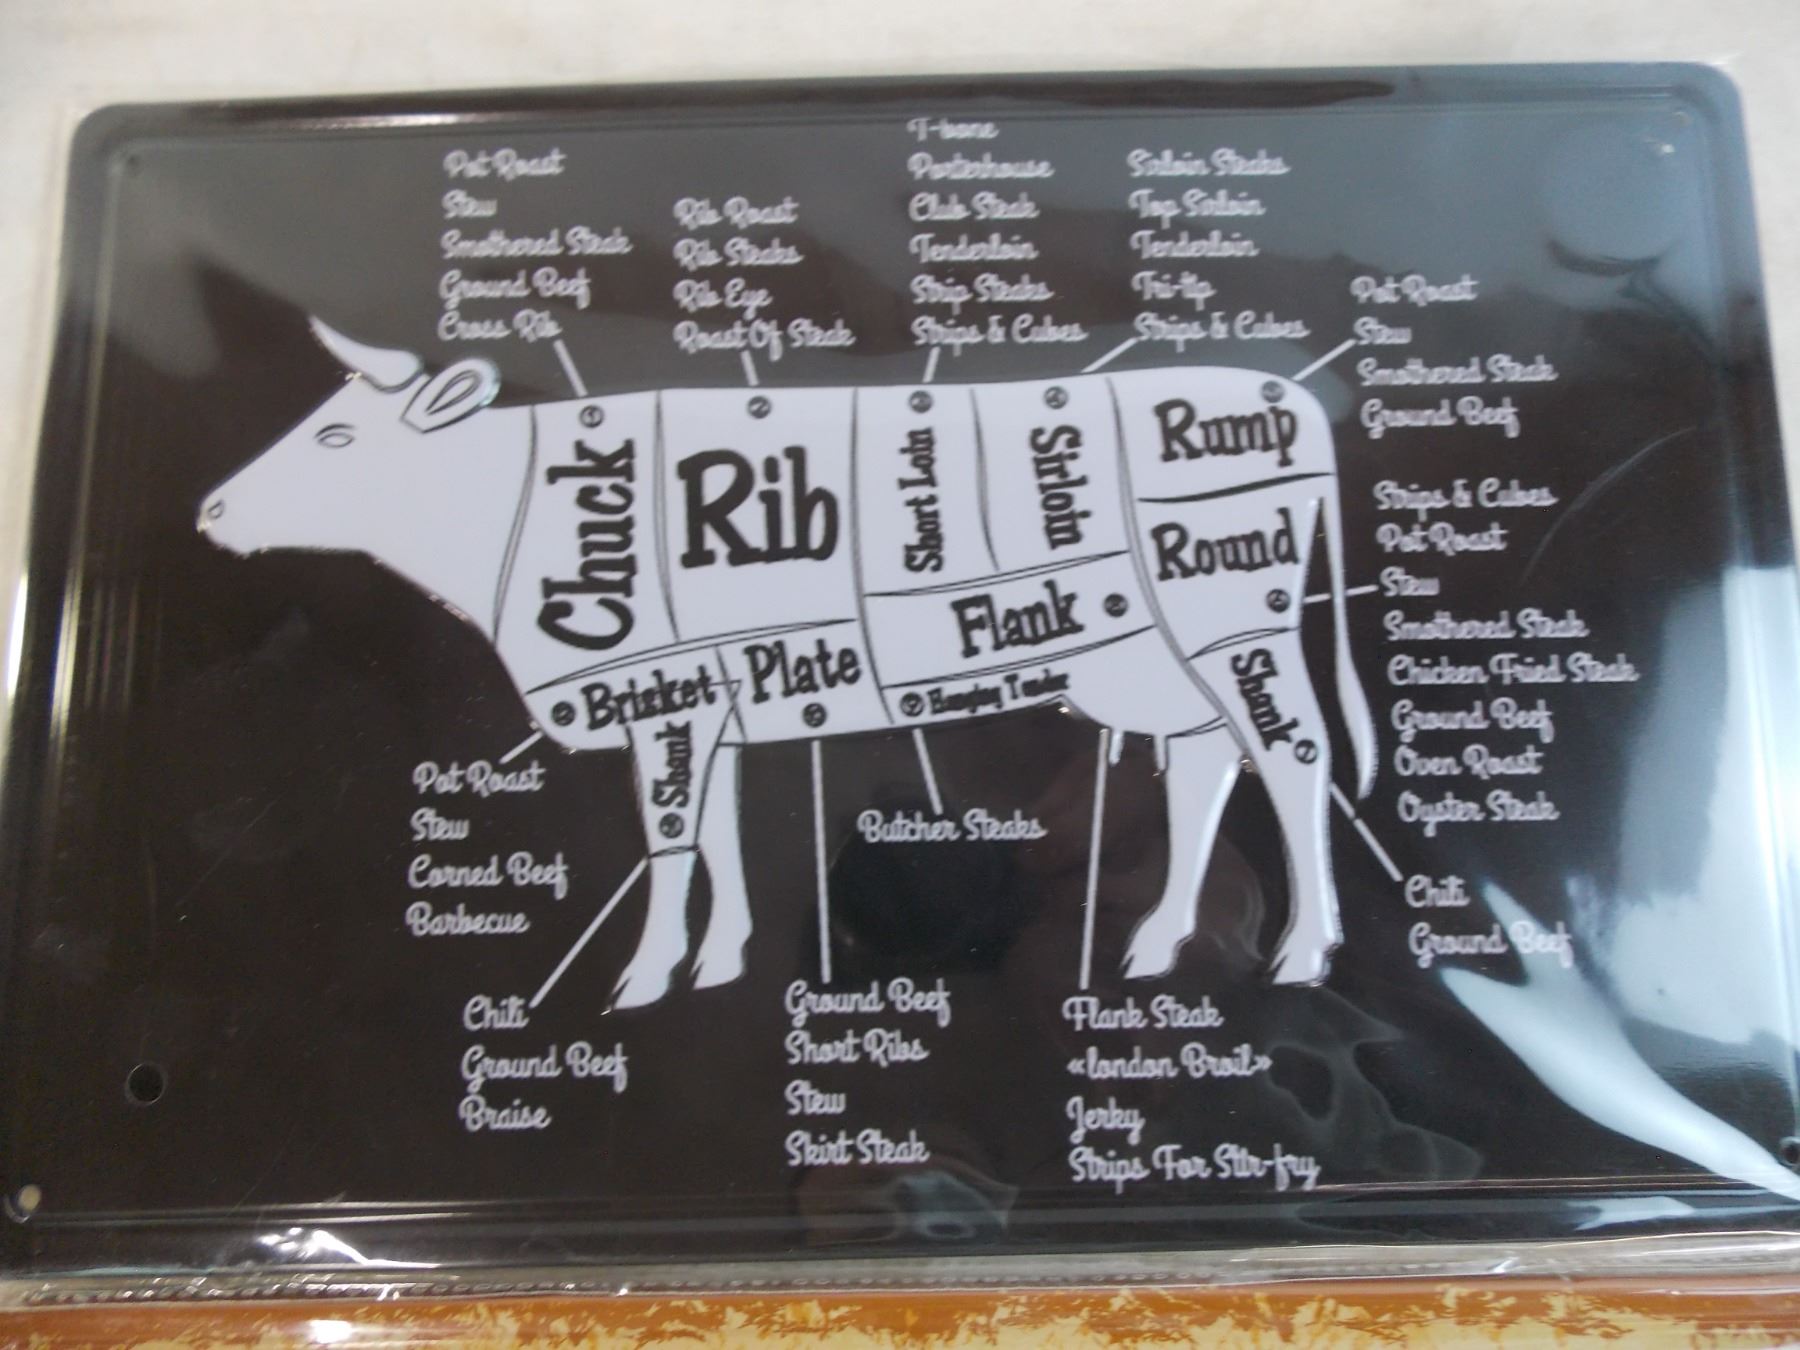 Pot Roast
Stew
Smothered Steak
Ground Beef
Cross Rib
Rib Roast
Rib Steaks
Rib Eye
Roast Of Steak
T-bone
Porterhouse
Club Steak
Tenderloin
Strip Steaks
Strips & Cubes
Sirloin Steaks
Top Sirloin
Tenderloin
Tri-tip
Strips & Cubes
Pot Roast
Stew
Smothered Steak
Ground Beef
Strips & Cubes
Pot Roast
Stew
Smothered Steak
Chicken Fried Steak
Ground Beef
Oven Roast
Oyster Steak
Chuck
Rib
Short Loin
Sirloin
Rump
Round
Flank
Brisket
Plate
Hanging Tender
Shank
Shank
Pot Roast
Stew
Corned Beef
Barbecue
Butcher Steaks
Chili
Ground Beef
Chili
Ground Beef
Braise
Ground Beef
Short Ribs
Stew
Skirt Steak
Flank Steak
«london Broil»
Jerky
Strips For Stir-fry